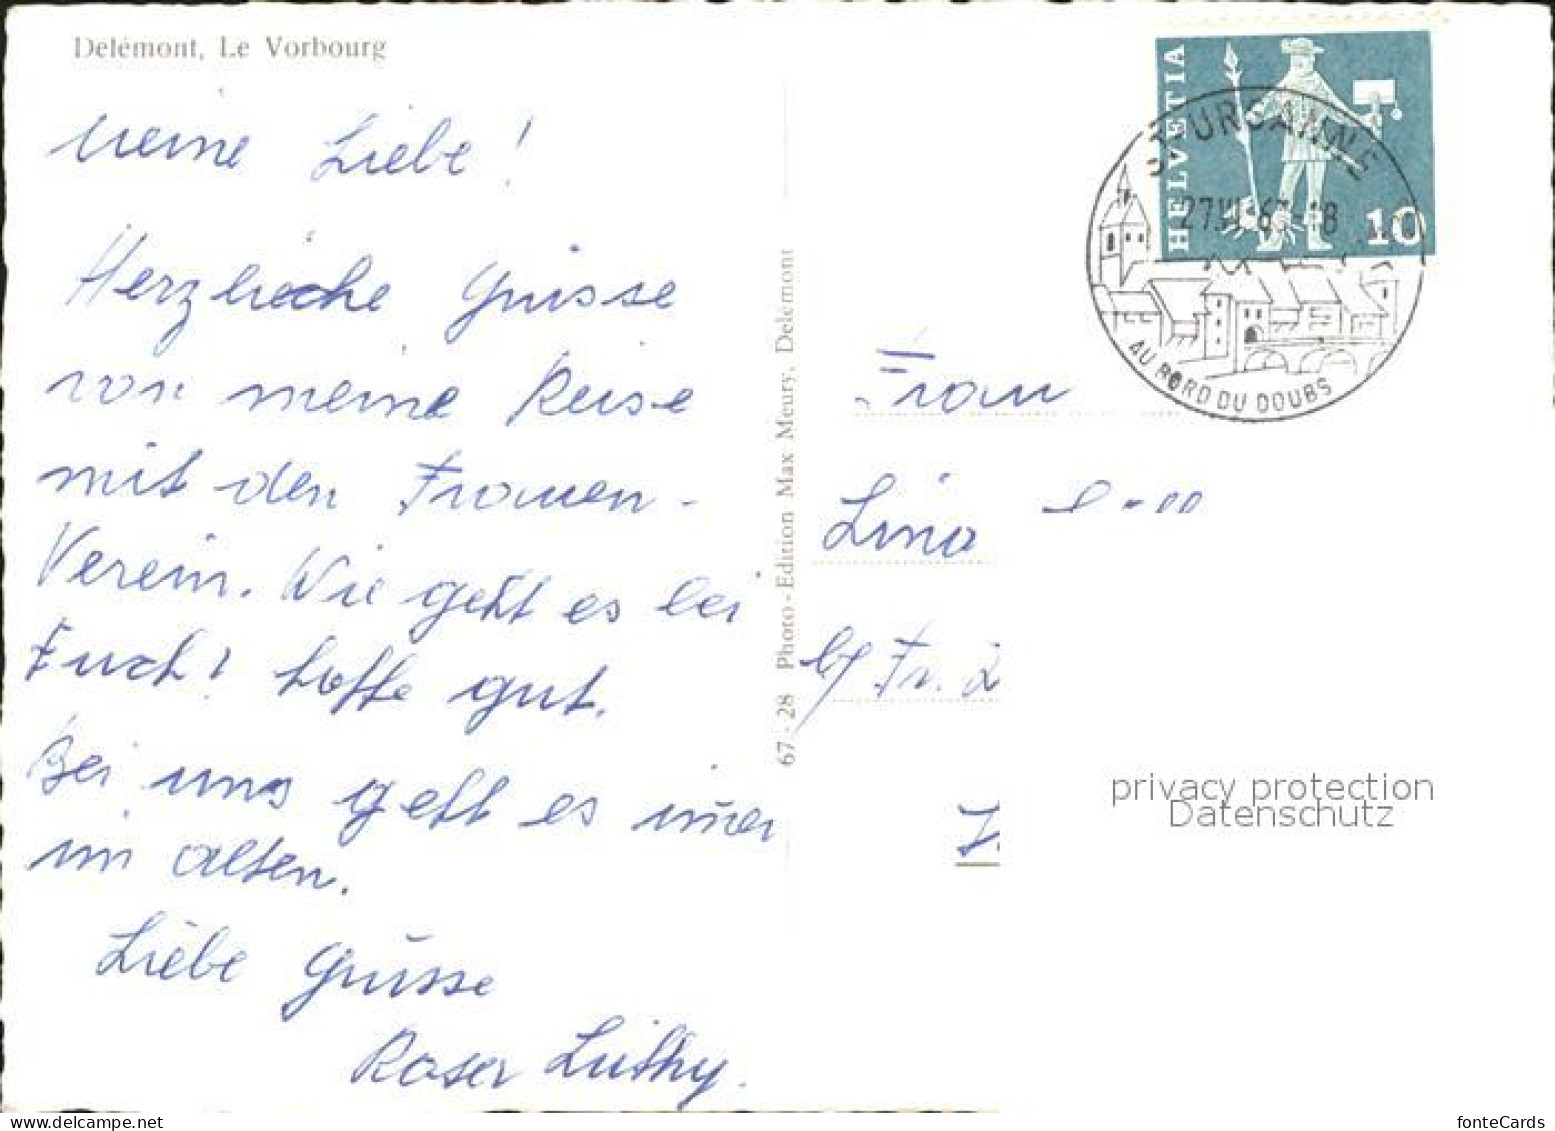 Delémont, Le Vorbourg
meine Liebe!
Herzlieche Grüsse
von meine Reise
mit den Frauen-
Verein. Wie geht es bei
Euch? hoffe gut.
Bei uns geht es imer
im alten.
Liebe Grüsse
Roser Lüthy.
67-28 Photo-Edition Max Meury, Delémont
HELVETIA
10
ST-URSANNE
27.VI.67-18
AU BORD DU DOUBS
Frau
Lina
by Fr.
privacy protection
Datenschutz
fonteCards